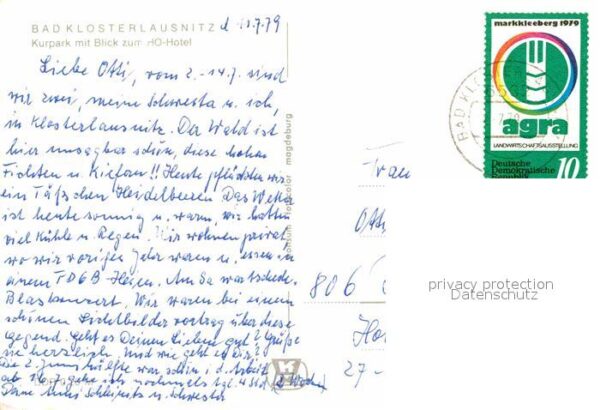 BAD KLOSTERLAUSNITZ d. 11.7.79
Kurpark mit Blick zum HO-Hotel
Liebe Otti, vom 2.-14.7. sind
wir zwei, meine Schwester u. ich,
in Klosterlausnitz. Der Wald ist
hier unsagbar schön, diese hohen
Fichten u. Kiefern!! Heute pflückten wir
ein Täßchen Heidelbeeren. Das Wetter
ist heute sonnig u. warm, wir hatten
viel Kühle u. Regen. Wir wohnen privat
wo wir voriges Jahr waren u. essen in
einem FDGB-Heim. Am Sa war
Blaskonzert. Wir waren bei einem
schönen Lichtbildervortrag über diese
Gegend. Geht es Deinen Lieben gut? Grüße
sie herzlich. Und wie geht es Dir?
Die 2. Junihälfte war schön i. d. Arbeit
ab 16.7. gehe ich nochmals tgl. 4 Std. (2 Wochen)
Deine u. Schwester
magdeburg
Frau
Otti
806
27-
markkleeberg 1979
agra
LANDWIRTSCHAFTSAUSSTELLUNG
Deutsche
Demokratische
Republik
10
BAD KL
privacy protection
Datenschutz